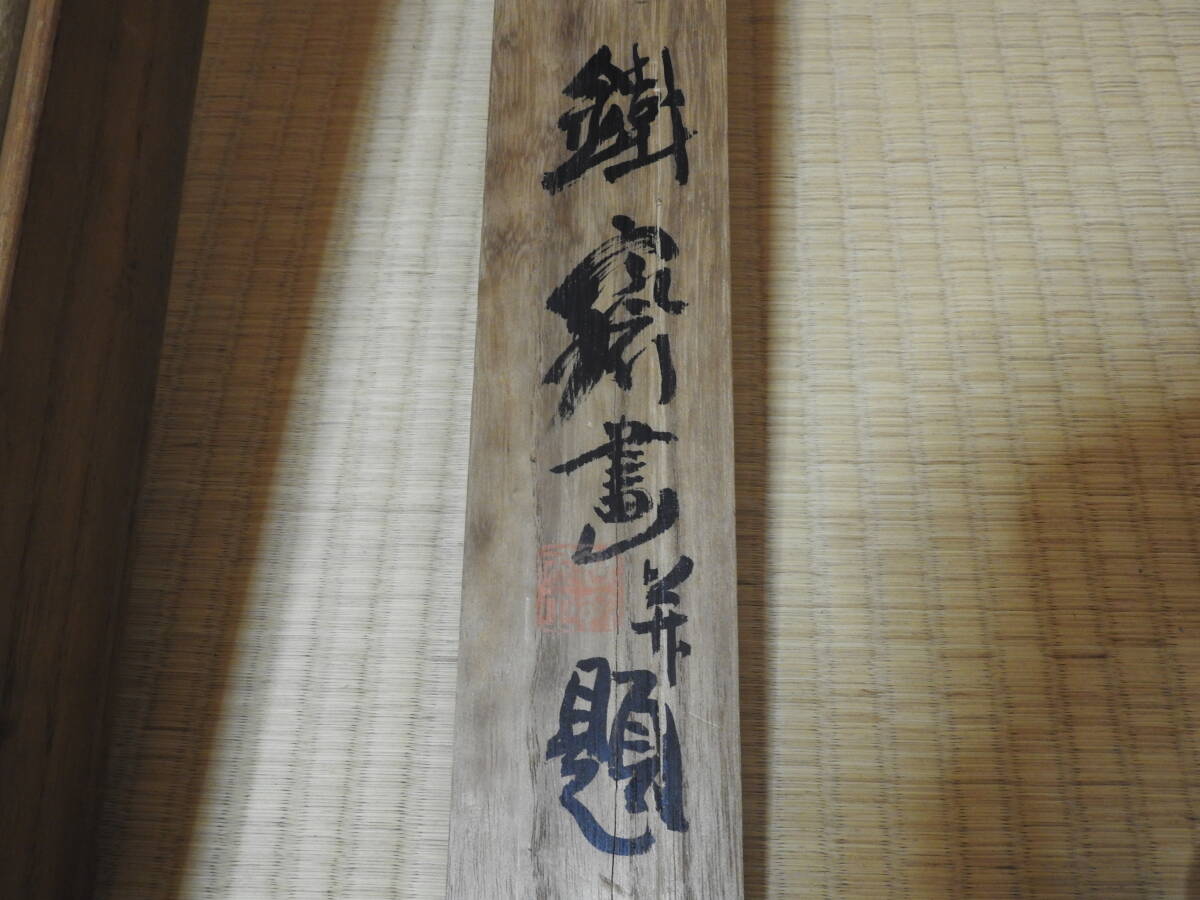 鐵齋畫并題